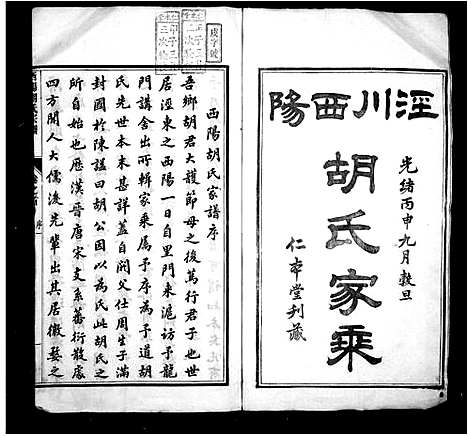 涇川西陽
光緒丙申九月穀旦
胡氏家乘
仁本堂刊藏
西陽胡氏家譜序
吾鄉胡君大護節母之後篤行君子也世
居涇東之西陽一日自里門東滬訪予龍
門講舍出所輯家乘屬予序為予道胡
氏先世本末甚詳蓋自閼父仕周生子滿
封國於陳諡曰胡公因以為氏此胡氏之
所自始也歷漢晉唐宋支系蕃衍散處
四方聞人大儒後先輩出其居徽婺之